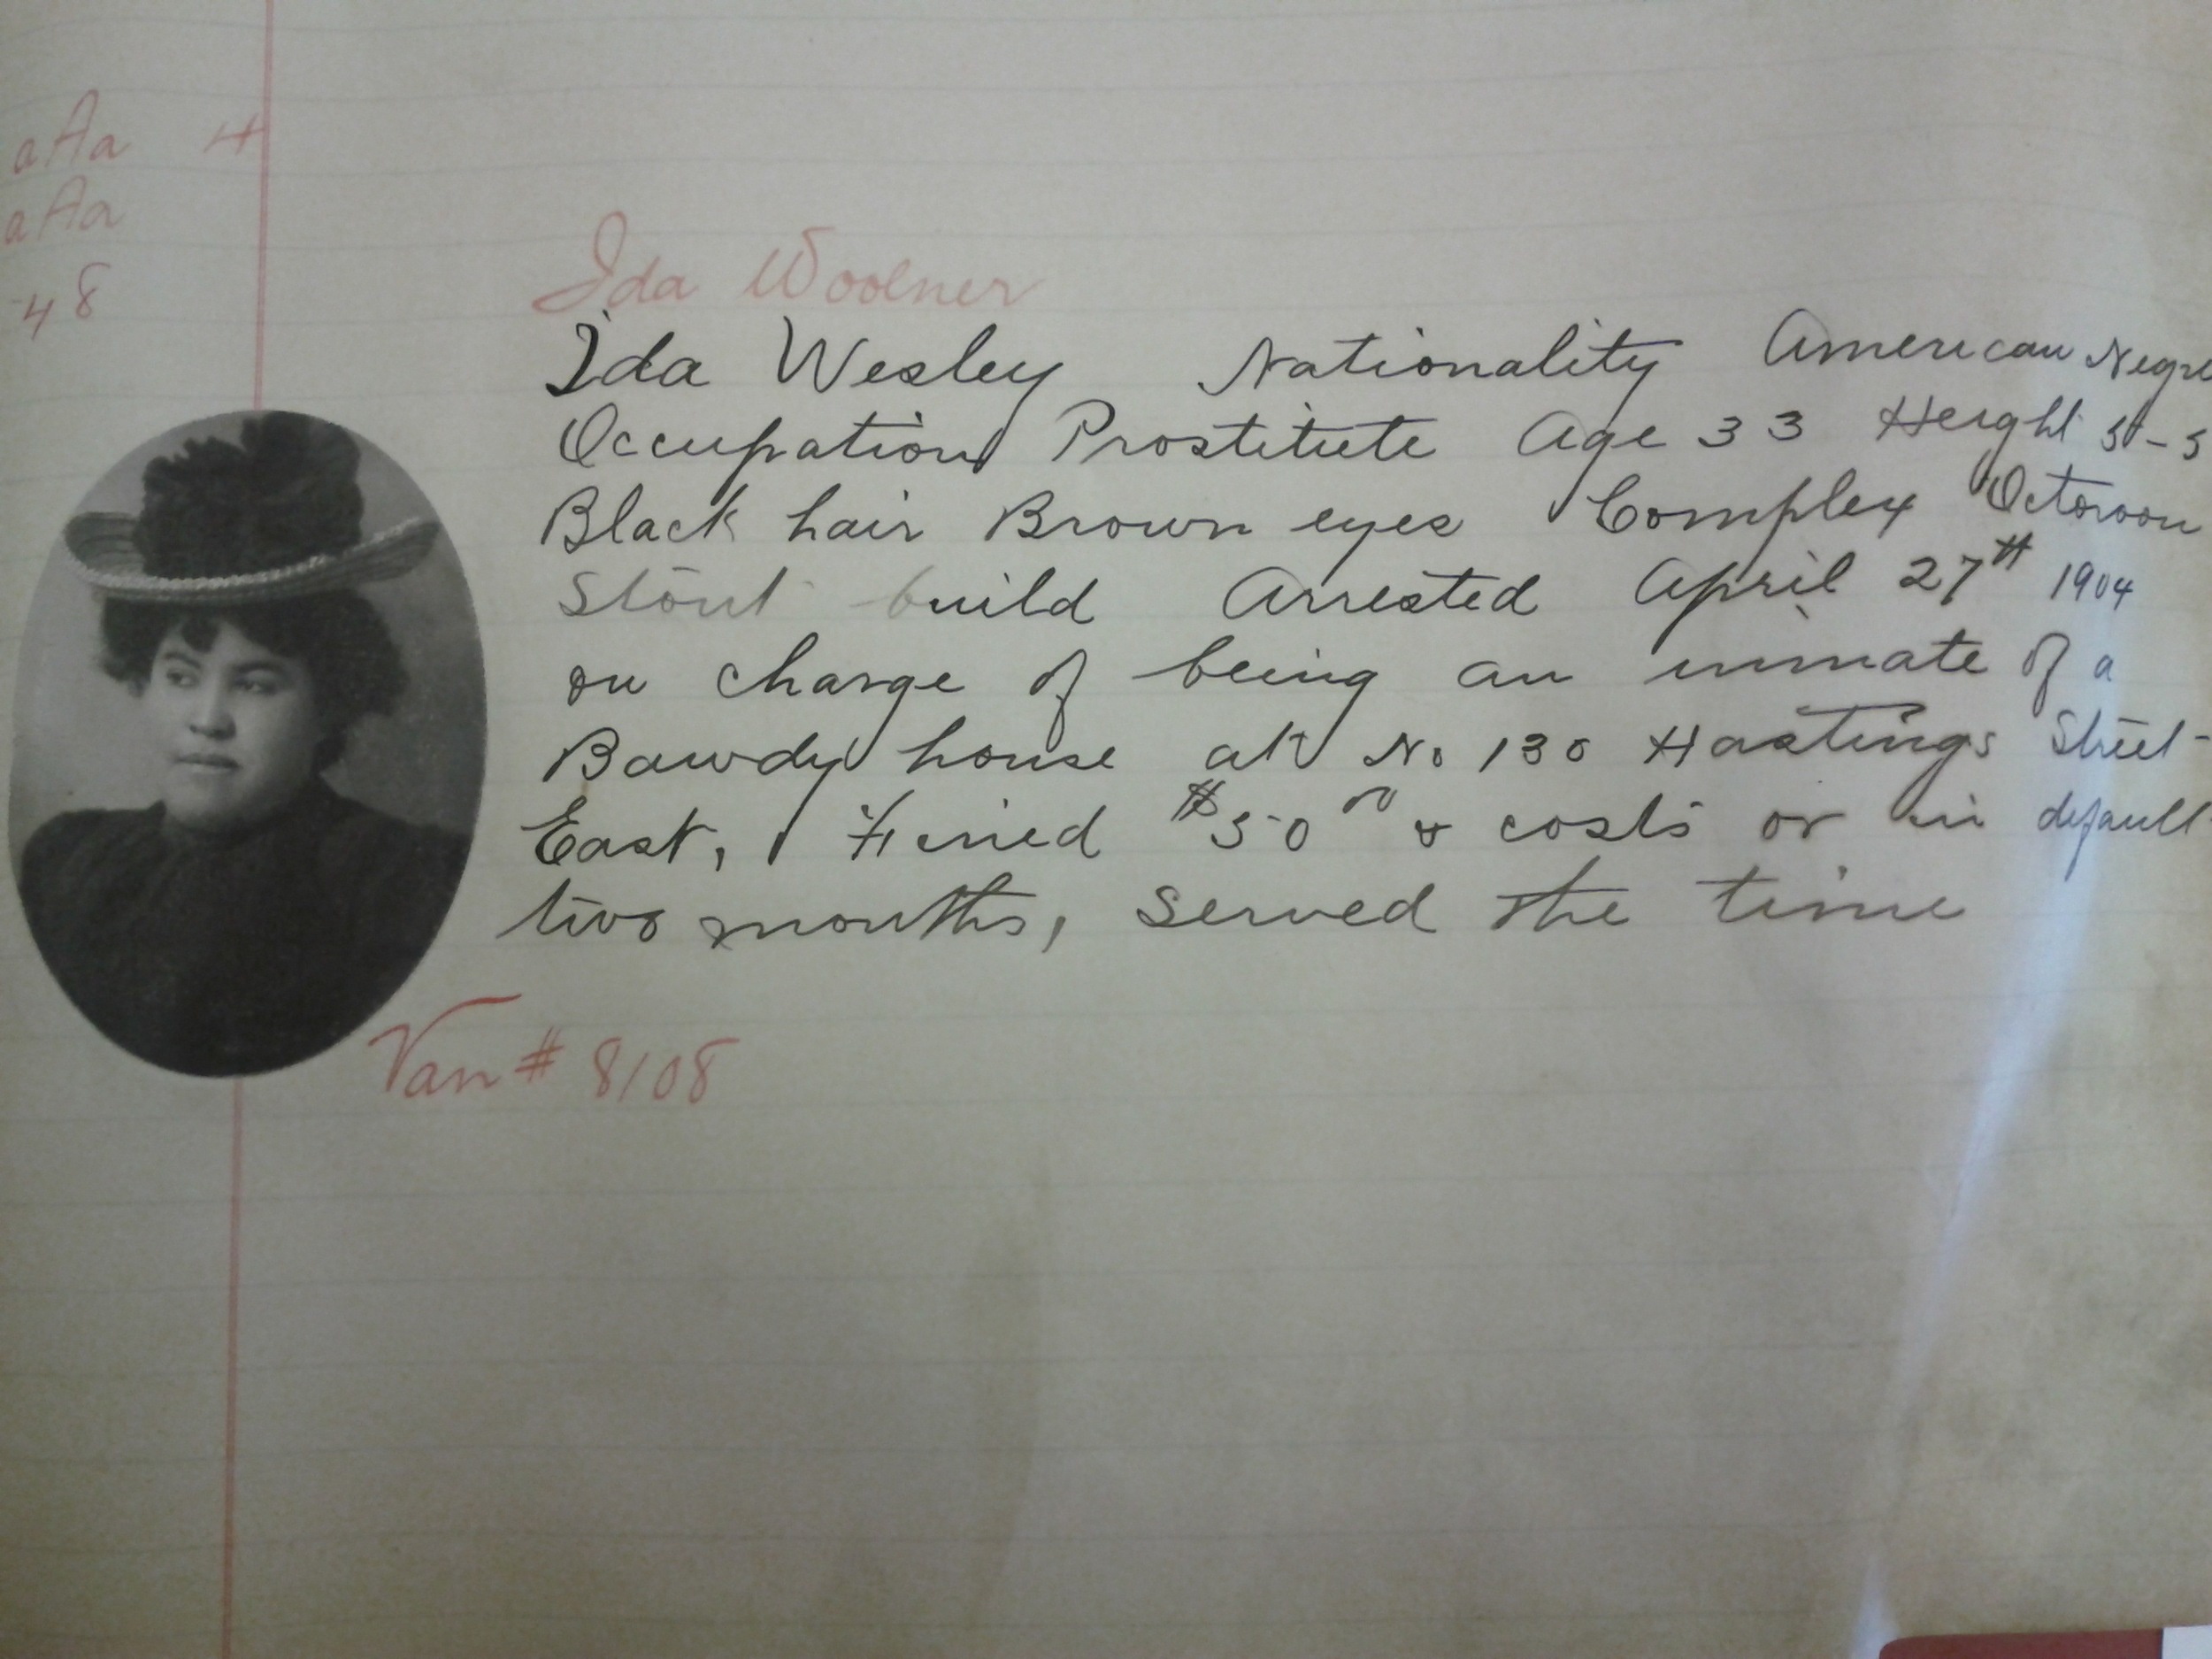 aAa 4
aAa
48
Ida Woolner
Ida Wesley Nationality American Negre
Occupation Prostitute Age 33 Height 5-5
Black hair Brown eyes Complex Octoroon
Stout build Arrested April 27th 1904
on charge of being an inmate of a
Bawdy house at No 130 Hastings Street
East, Fined $50 00 & costs or in default
two months, served the time
Van # 8108